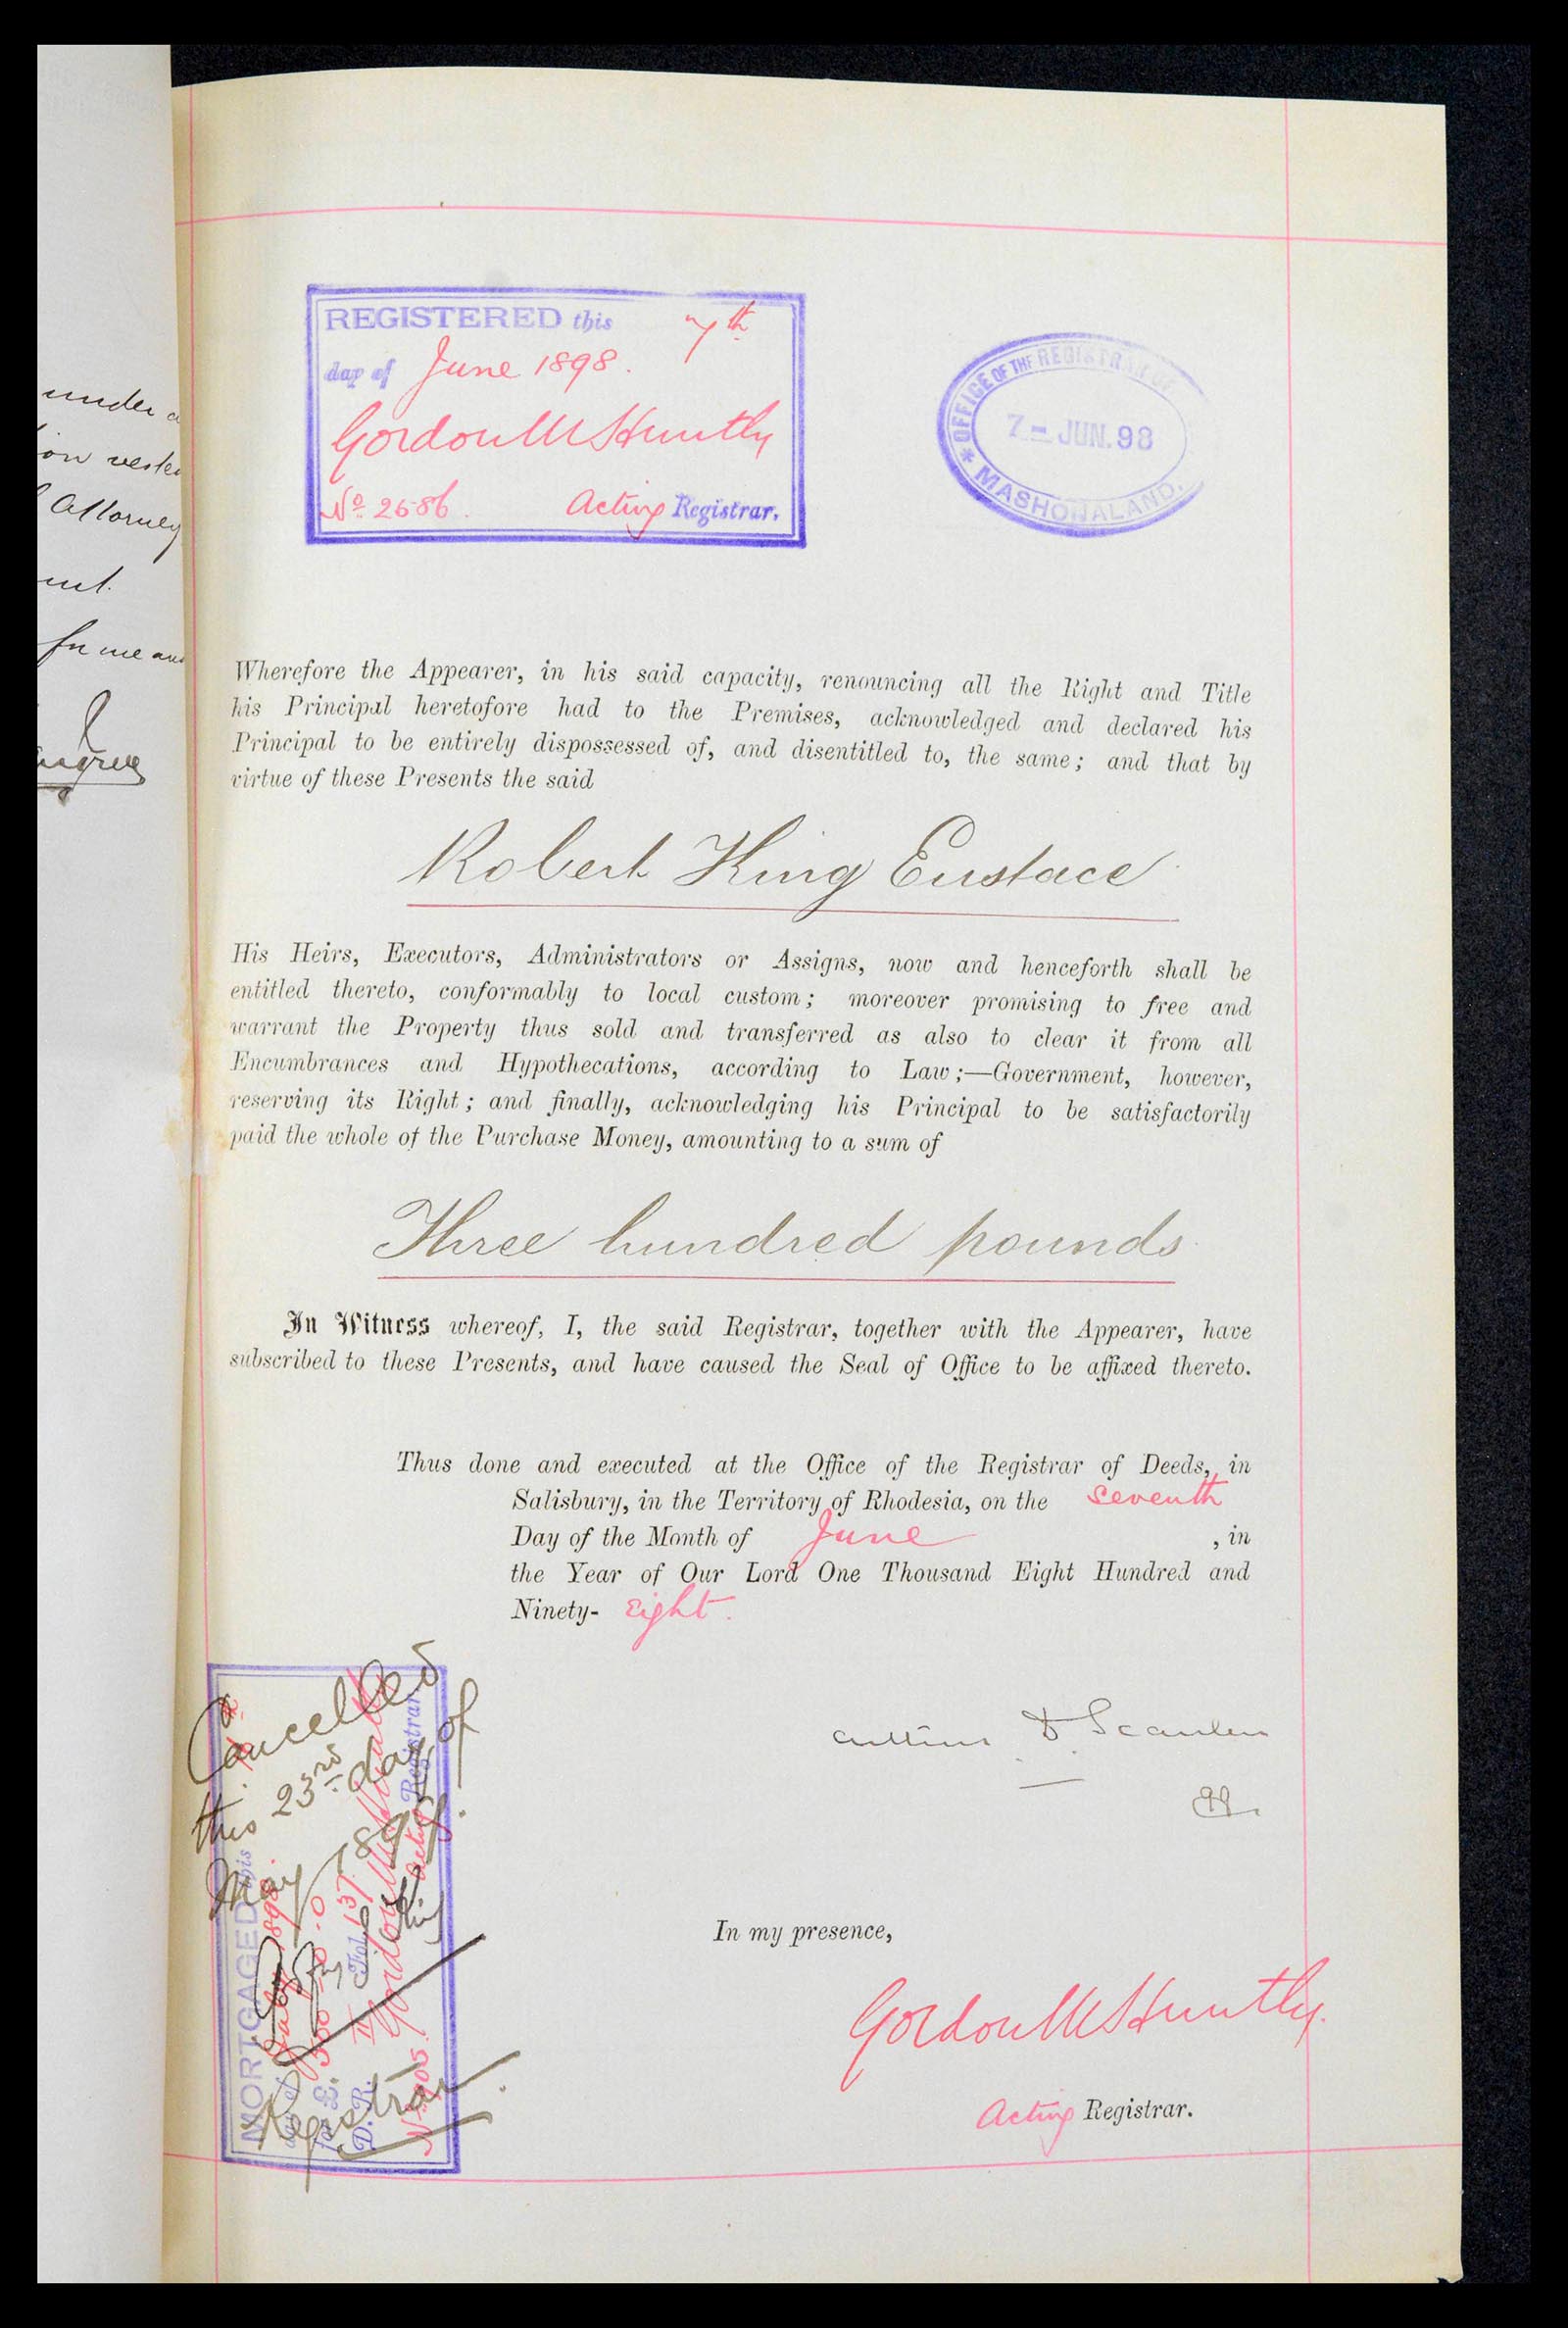 under a
Attorney
for me and
REGISTERED this 7th
day of June 1898.
Gordon M Huntly
No 2686. Acting Registrar.
* OFFICE OF THE REGISTRAR OF
7 - JUN. 98
MASHONALAND.
Wherefore the Appearer, in his said capacity, renouncing all the Right and Title
his Principal heretofore had to the Premises, acknowledged and declared his
Principal to be entirely dispossessed of, and disentitled to, the same; and that by
virtue of these Presents the said
Robert King Eustace
His Heirs, Executors, Administrators or Assigns, now and henceforth shall be
entitled thereto, conformably to local custom; moreover promising to free and
warrant the Property thus sold and transferred as also to clear it from all
Encumbrances and Hypothecations, according to Law;—Government, however,
reserving its Right; and finally, acknowledging his Principal to be satisfactorily
paid the whole of the Purchase Money, amounting to a sum of
Three hundred pounds
In Witness whereof, I, the said Registrar, together with the Appearer, have
subscribed to these Presents, and have caused the Seal of Office to be affixed thereto.
Thus done and executed at the Office of the Registrar of Deeds, in
Salisbury, in the Territory of Rhodesia, on the seventh
Day of the Month of June , in
the Year of Our Lord One Thousand Eight Hundred and
Ninety- Eight.
Scanlen
qq.
In my presence,
Gordon M Huntly.
Acting Registrar.
MORTGAGED this
D. R. Fol. 137.
Gordon M Huntly
Acting Registrar
Cancelled
this 23rd day of
May 189
Registrar